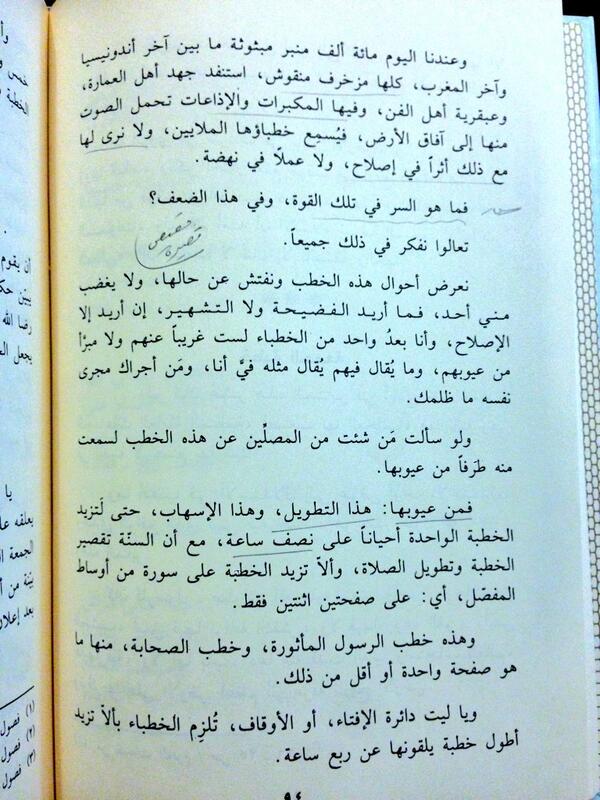 وعندنا اليوم مائة ألف منبر مبثوثة ما بين آخر أندونيسيا
وآخر المغرب، كلها مزخرف منقوش، استنفد جهد أهل العمارة،
وعبقرية أهل الفن، وفيها المكبرات والإذاعات تحمل الصوت
منها إلى آفاق الأرض، فيُسمِع خطباؤها الملايين، ولا نرى لها
مع ذلك أثراً في إصلاح، ولا عملاً في نهضة.
فما هو السر في تلك القوة، وفي هذا الضعف؟
تعالوا نفكر في ذلك جميعاً.
نعرض أحوال هذه الخطب ونفتش عن حالها، ولا يغضب
مني أحد، فما أريد الفضيحة ولا التشهير، إن أريد إلا
الإصلاح، وأنا بعدُ واحد من الخطباء لست غريباً عنهم ولا مبرّأ
من عيوبهم، وما يُقال فيهم يُقال مثله فيَّ أنا، ومَن أجراك مجرى
نفسه ما ظلمك.
ولو سألت مَن شئت من المصلِّين عن هذه الخطب لسمعت
منه طرَفاً من عيوبها.
فمن عيوبها: هذا التطويل، وهذا الإسهاب، حتى لَتزيد
الخطبة الواحدة أحياناً على نصف ساعة، مع أن السنّة تقصير
الخطبة وتطويل الصلاة، وألاّ تزيد الخطبة على سورة من أوساط
المفصّل، أي: على صفحتين اثنتين فقط.
وهذه خطب الرسول المأثورة، وخطب الصحابة، منها ما
هو صفحة واحدة أو أقل من ذلك.
ويا ليت دائرة الإفتاء، أو الأوقاف، تُلزِم الخطباء بألاّ تزيد
أطول خطبة يلقونها عن ربع ساعة.
٩٤